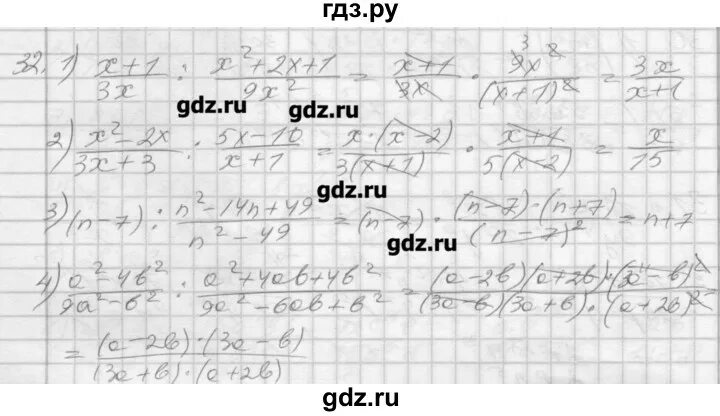 гдз.ру
32. 1) (x+1)/(3x) : (x²+2x+1)/(9x²) = (x+1)/(3x) · (9x²)/((x+1)²) 3 = (3x)/(x+1)
gdz.ru gdz.ru
2) (x²-2x)/(3x+3) : (5x-10)/(x+1) = (x·(x-2))/(3(x+1)) · (x+1)/(5(x-2)) = x/15
gdz.ru
3) (n-7) : (n²-14n+49)/(n²-49) = (n-7) · ((n-7)·(n+7))/((n-7)²) = n+7
gdz.ru
4) (a²-4b²)/(9a²-b²) : (a²+4ab+4b²)/(9a²-6ab+b²) = ((a-2b)(a+2b)·(3a-b)²)/((3a-b)(3a+b)·(a+2b)²)
= ((a-2b)·(3a-b))/((3a+b)·(a+2b))
gdz.ru